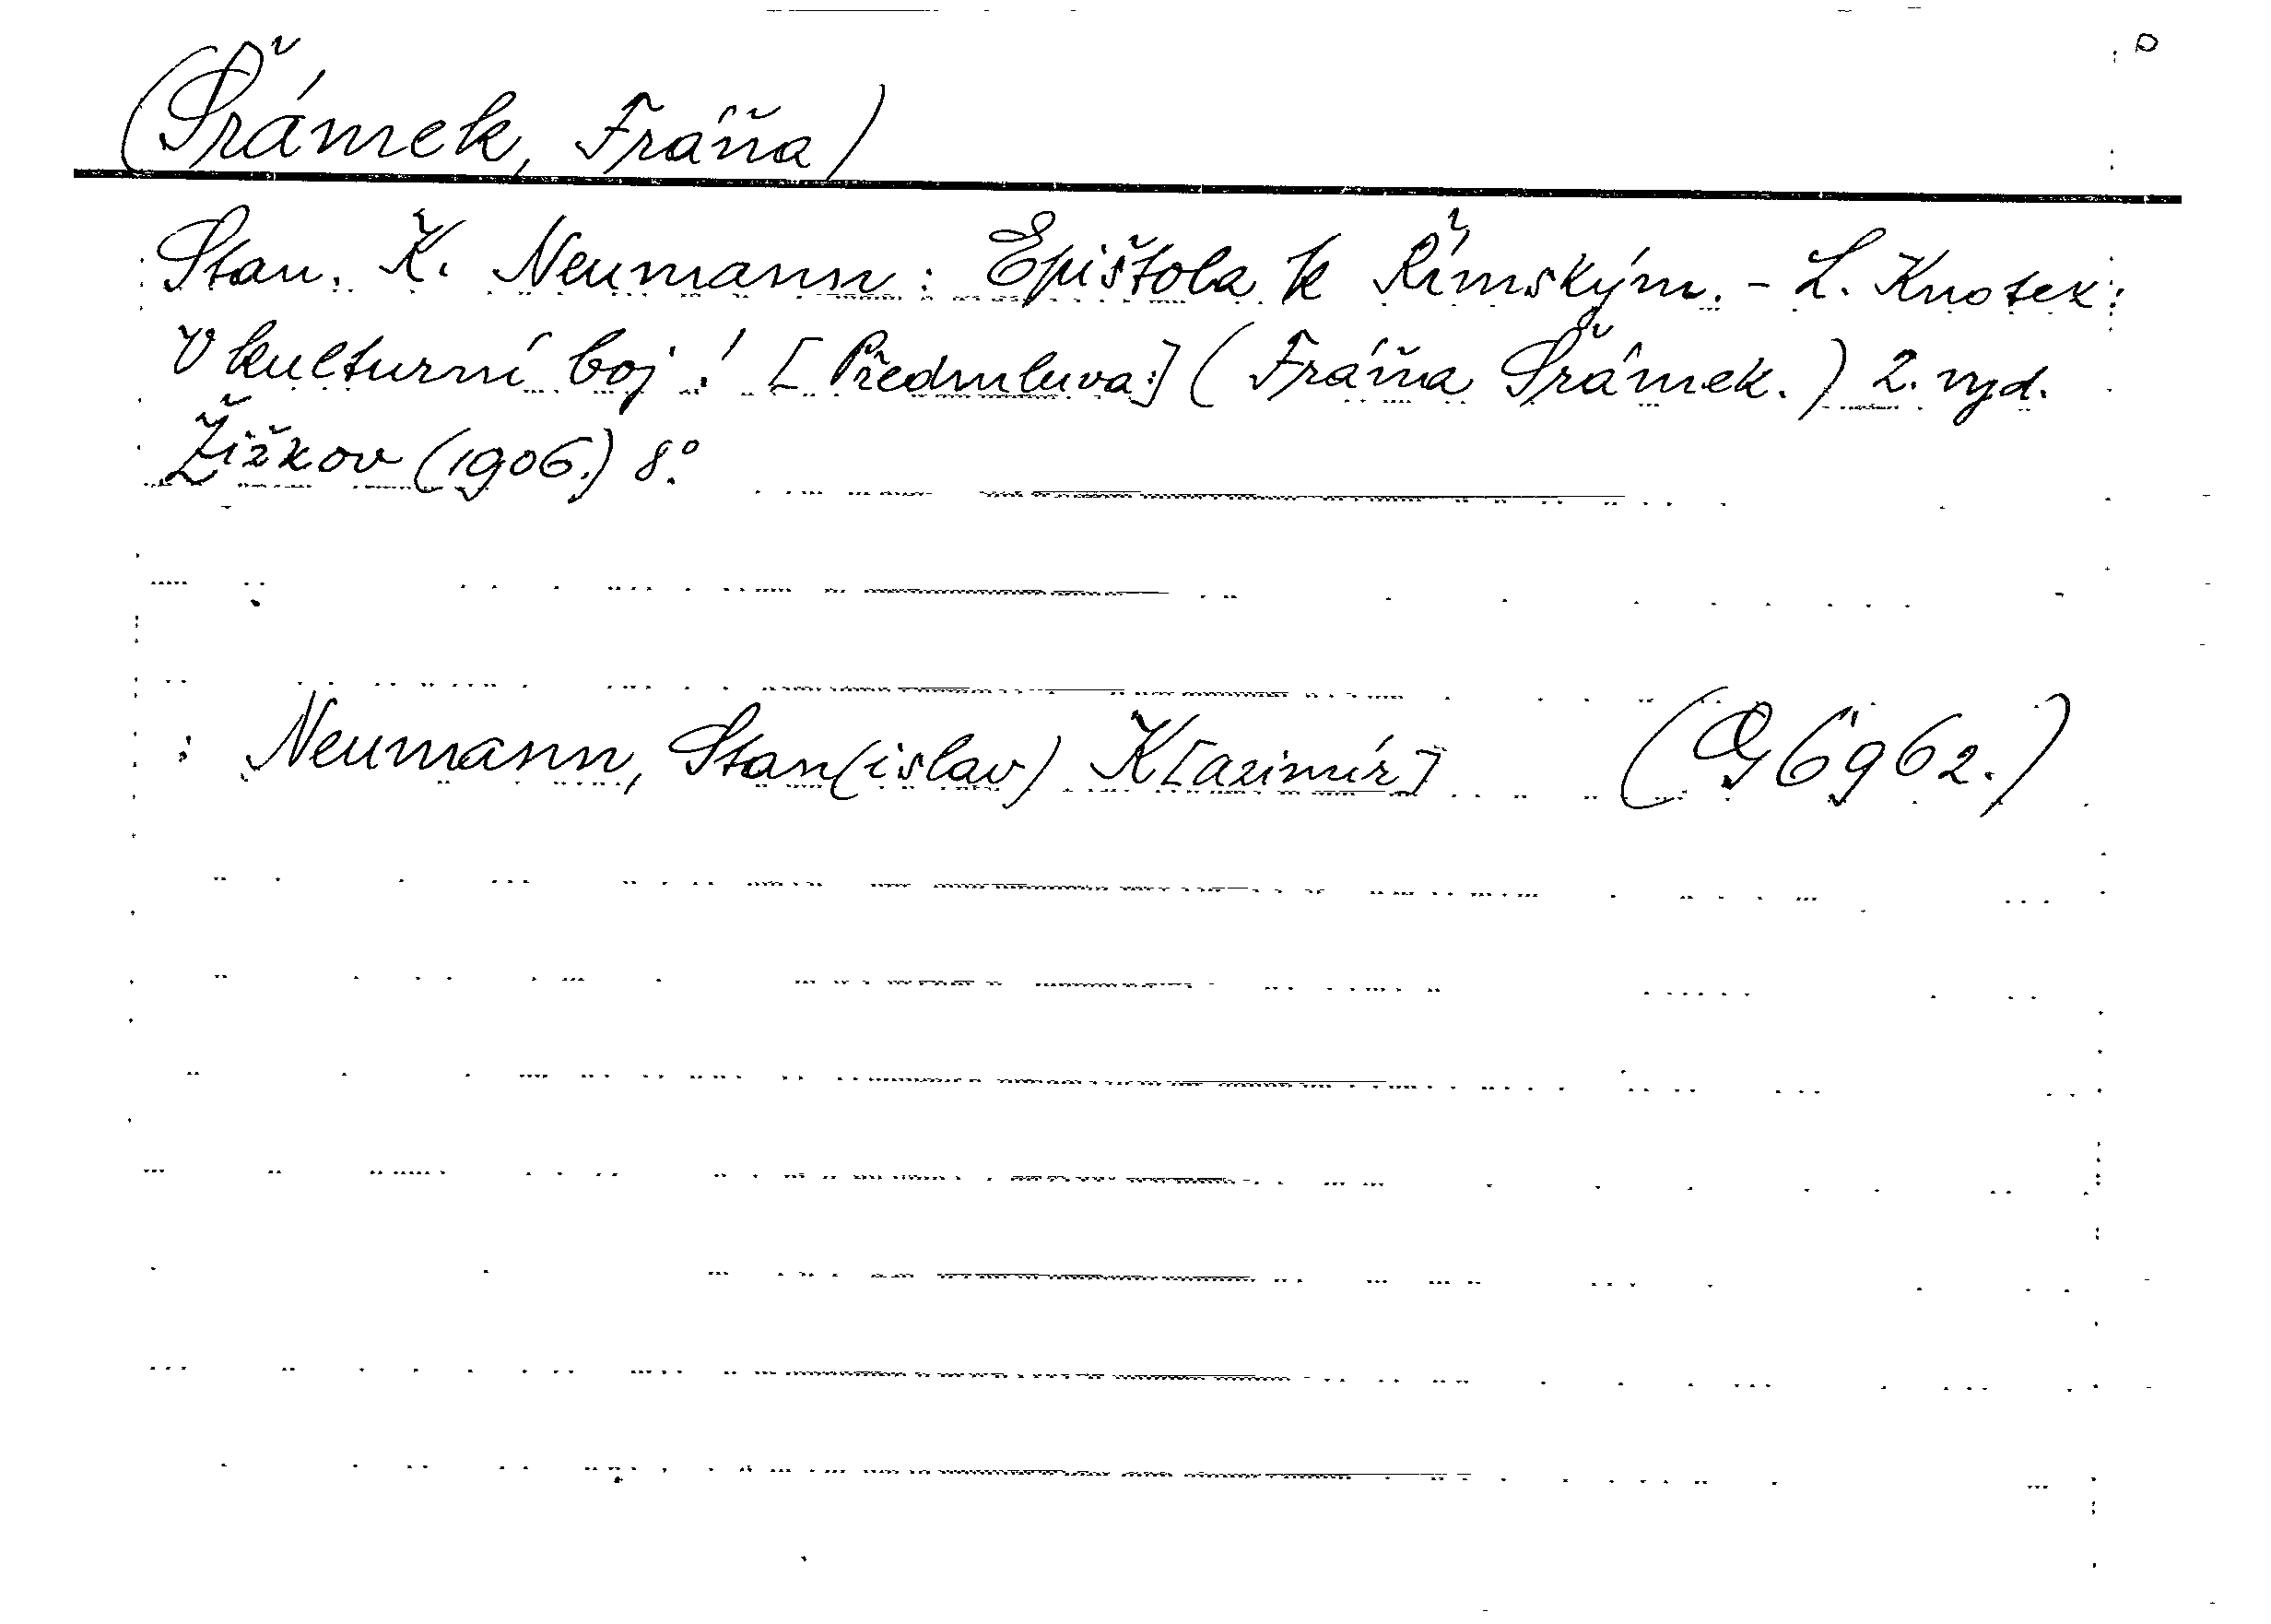 (Šrámek, Fráňa)
Stan. K. Neumann: Epištola k Římským. - L. Knotek:
V kulturní boj! [Předmluva:] (Fráňa Šrámek.) 2. vyd.
Žižkov (1906.) 8°.
: Neumann, Stan(islav) K[azimír] (G 6962.)